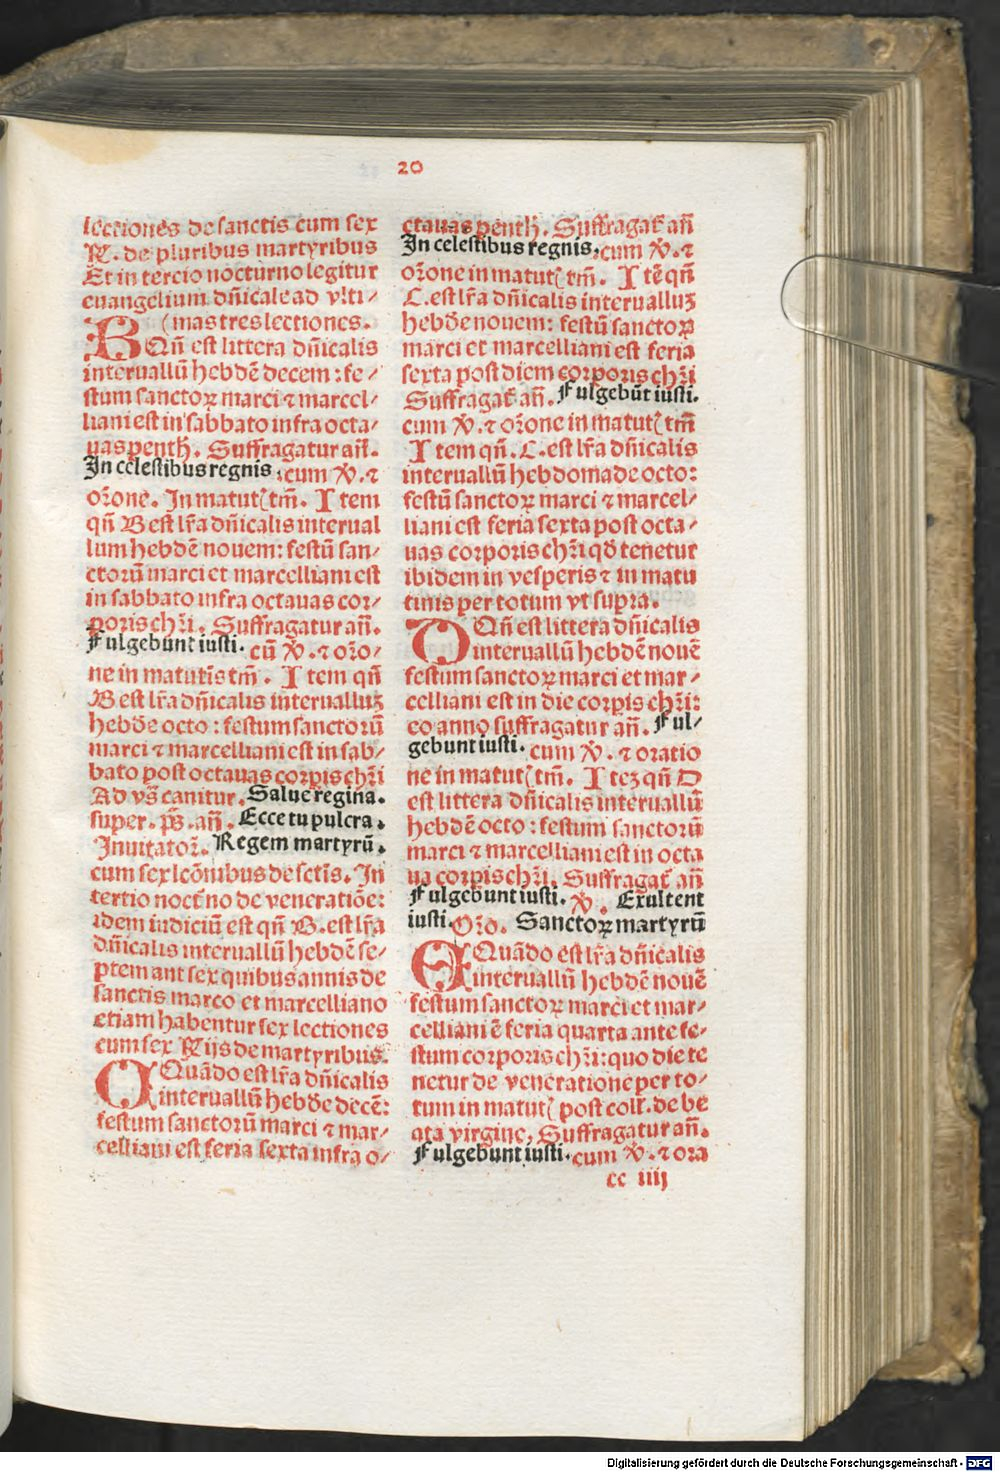 20
lectiones de sanctis cum sex
R̃. de pluribus martyribus
Et in tercio nocturno legitur
euangelium dñicale ad vlti⸗
(mas tres lectiones.
BQñ est littera dñicalis
interuallũ hebdẽ decem: fe⸗
stum sanctoꝝ marci ⁊ marcel⸗
liani est in sabbato infra octa⸗
uas penth̃. Suffragatur añ.
In celestibus regnis. cum v̾. ⁊
oꝛõne. In matut̃ tm̃. Item
qñ B est lr̃a dñicalis interual
lum hebdẽ nouem: festũ san⸗
ctorũ marci et marcelliani est
in sabbato infra octauas cor⸗
poris chr̃i. Suffragatur añ.
Fulgebunt iusti. cũ v̾. ⁊ oꝛo⸗
ne in matutĩs tm̃. Item qñ
B est lr̃a dñicalis interualluꝫ
hebdẽ octo: festum sanctorũ
marci ⁊ marcelliani est in sab⸗
bato post octauas corp̃is chr̃i
Ad vs̃ canitur. Salue regina.
super. ps̃. añ. Ecce tu pulcra.
Inuitatoꝛ. Regem martyrũ.
cum sex lcõnibus de sctĩs. In
tertio noct̃no de veneratiõe:
idem iudiciũ est qñ B. est lr̃a
dñicalis interuallũ hebdẽ se⸗
ptem aut sex quibus annis de
sanctis marco et marcelliano
etiam habentur sex lectiones
cum sex R̃ijs de martyribus.
CQuãdo est lr̃a dñicalis
interuallũ hebdẽ decẽ:
festum sanctorũ marci ⁊ mar⸗
celliani est feria sexta infra o⸗
ctauas penth̃. Suffragat̃ añ
In celestibus regnis. cum v̾. ⁊
oꝛõne in matut̃ tm̃. Itẽ qñ
C. est lr̃a dñicalis interualluꝫ
hebdẽ nouem: festũ sanctoꝝ
marci et marcelliani est feria
sexta post diem corporis chr̃i
Suffragat̃ añ. Fulgebũt iusti.
cum v̾. ⁊ oꝛõne in matut̃ tm̃
Item qñ. C. est lr̃a dñicalis
interuallũ hebdomade octo:
festũ sanctoꝝ marci ⁊ marcel⸗
liani est feria sexta post octa⸗
uas corporis chr̃i qð tenetur
ibidem in vesperis ⁊ in matu
tinis per totum vt supra.
DQñ est littera dñicalis
interuallũ hebdẽ nouẽ
festum sanctoꝝ marci et mar⸗
celliani est in die corp̃is chr̃i:
eo anno suffragatur añ. Ful⸗
gebunt iusti. cum v̾. ⁊ oratio
ne in matut̃ tm̃. Iteꝫ qñ D
est littera dñicalis interuallũ
hebdẽ octo: festum sanctorũ
marci ⁊ marcelliani est in octa
ua corp̃is chr̃i. Suffragat̃ añ
Fulgebunt iusti. v̾. Exultent
iusti. Oꝛo. Sanctoꝝ martyrũ
EQuãdo est lr̃a dñicalis
interuallũ hebdẽ nouẽ
festum sanctoꝝ marci et mar⸗
celliani ẽ feria quarta ante fe⸗
stum corporis chr̃i: quo die te
netur de veneratione per to⸗
tum in matut̃ post coll̃. de be
ata virgine, Suffragatur añ.
Fulgebunt iusti. cum v̾. ⁊ ora
cc iiij
Digitalisierung gefördert durch die Deutsche Forschungsgemeinschaft - DFG